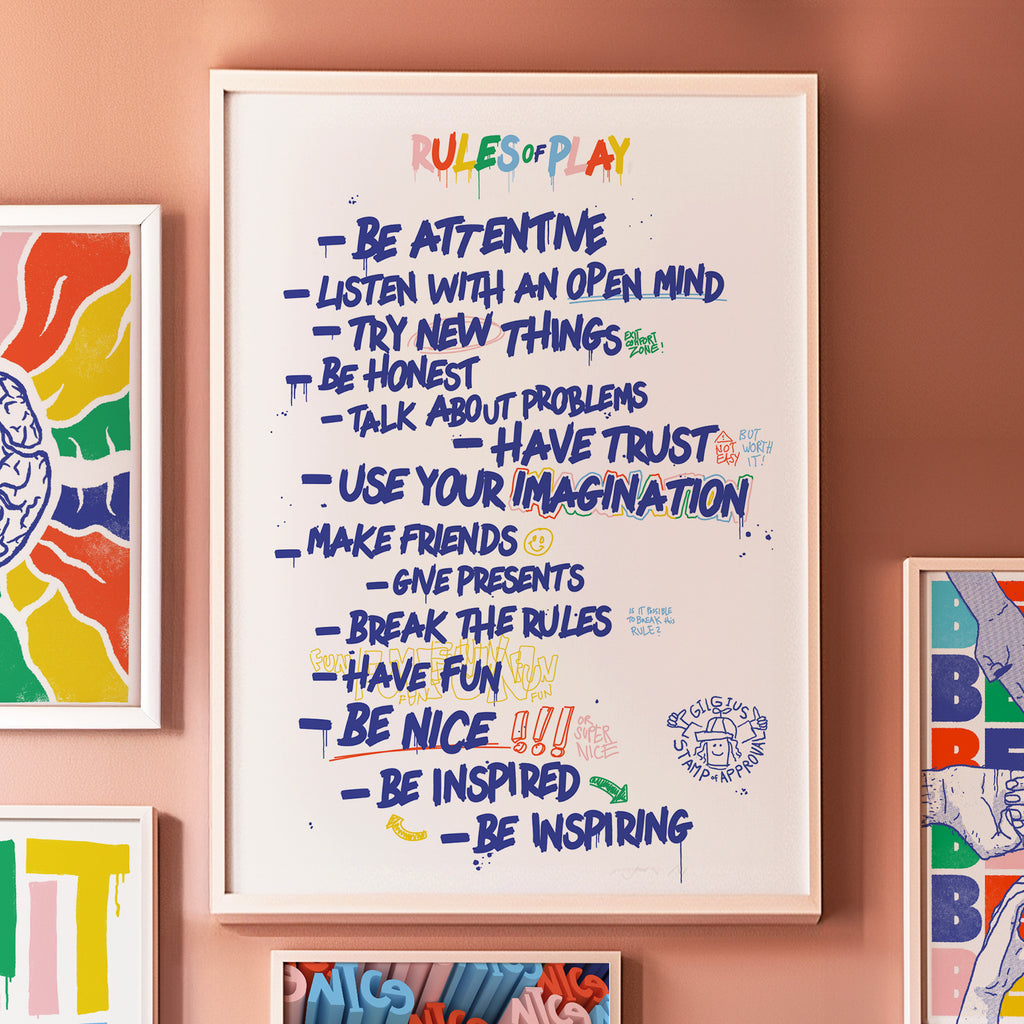 RULES OF PLAY
- BE ATTENTIVE
- LISTEN WITH AN OPEN MIND
- TRY NEW THINGS
EXIT COMFORT ZONE!
- BE HONEST
- TALK ABOUT PROBLEMS
- HAVE TRUST
! NOT EASY
BUT WORTH IT!
- USE YOUR IMAGINATION
- MAKE FRIENDS
- GIVE PRESENTS
- BREAK THE RULES
IS IT POSIBLE
TO BREAK this
RULE?
- HAVE FUN
FUN FUN FUN FUN
FUN FUN
- BE NICE !!!
OR
SUPER
NICE
GILGIUS
STAMP of APPROVAL
- BE INSPIRED
- BE INSPIRING
IT
B
B
BE
B
B
B
B
NICE NICE
NICE NICE